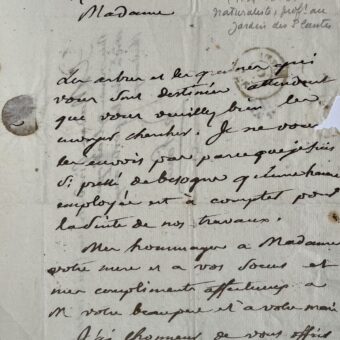 naturaliste, prof. au
jardin des Plantes
Madame
Les arbres et les graines qui
vous sont destinés attendent
que vous veuillez bien les
envoyer chercher. Je ne vous
les envois pas parce que je suis
si pressé de besogne qu'une heure
employée est à compter pour
la suite de nos travaux.
Mes hommages a Madame
votre mere et a vos Soeurs et
mes compliments affectueux a
M votre beaupere et à votre mari
J'ai l'honneur de vous offrir